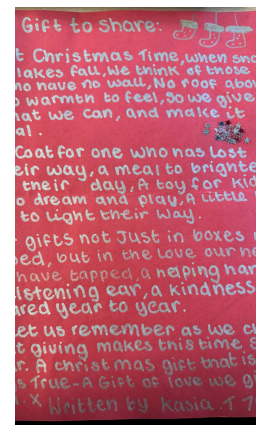 Gift to share:
t Christmas Time, when sno
lakes fall, We think of those
ho have no wall, No roof abov
o warmth to feel, So we give
hat we can, and make it
al.
Coat for one who has lost
eir way, a meal to brighte
their day, A toy for kid
o dream and play, A little
to light their way.
gifts not Just in boxes
ped, but in the love our he
have tapped, a helping han
istening ear, a kindness
ared year to year.
et us remember as we c
t giving makes this time S
r. A christmas gift that is
s True - A Gift of love we gi
.x Written by Kasia. T 7